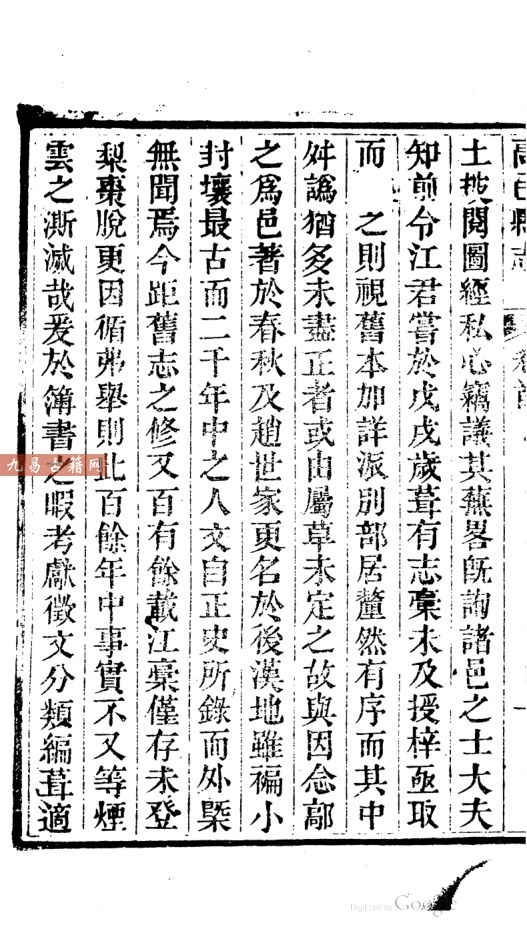 高邑縣志
土披閱圖經私心竊議其蕪畧旣詢諸邑之士大夫
知前令江君嘗於戊戌歲葺有志稾未及授梓亟取
而 之則視舊本加詳派別部居釐然有序而其中
舛譌猶多未盡正者或由屬草未定之故與因念鄗
之爲邑著於春秋及趙世家更名於後漢地雖褊小
封壤最古而二千年中之人文自正史所錄而外槩
無聞焉今距舊志之修又百有餘載江稾僅存未登
梨棗脫更因循弗舉則此百餘年中事實不又等煙
雲之澌滅哉爰於簿書之暇考獻徵文分類編葺適
九易古籍网
Digitized by Google